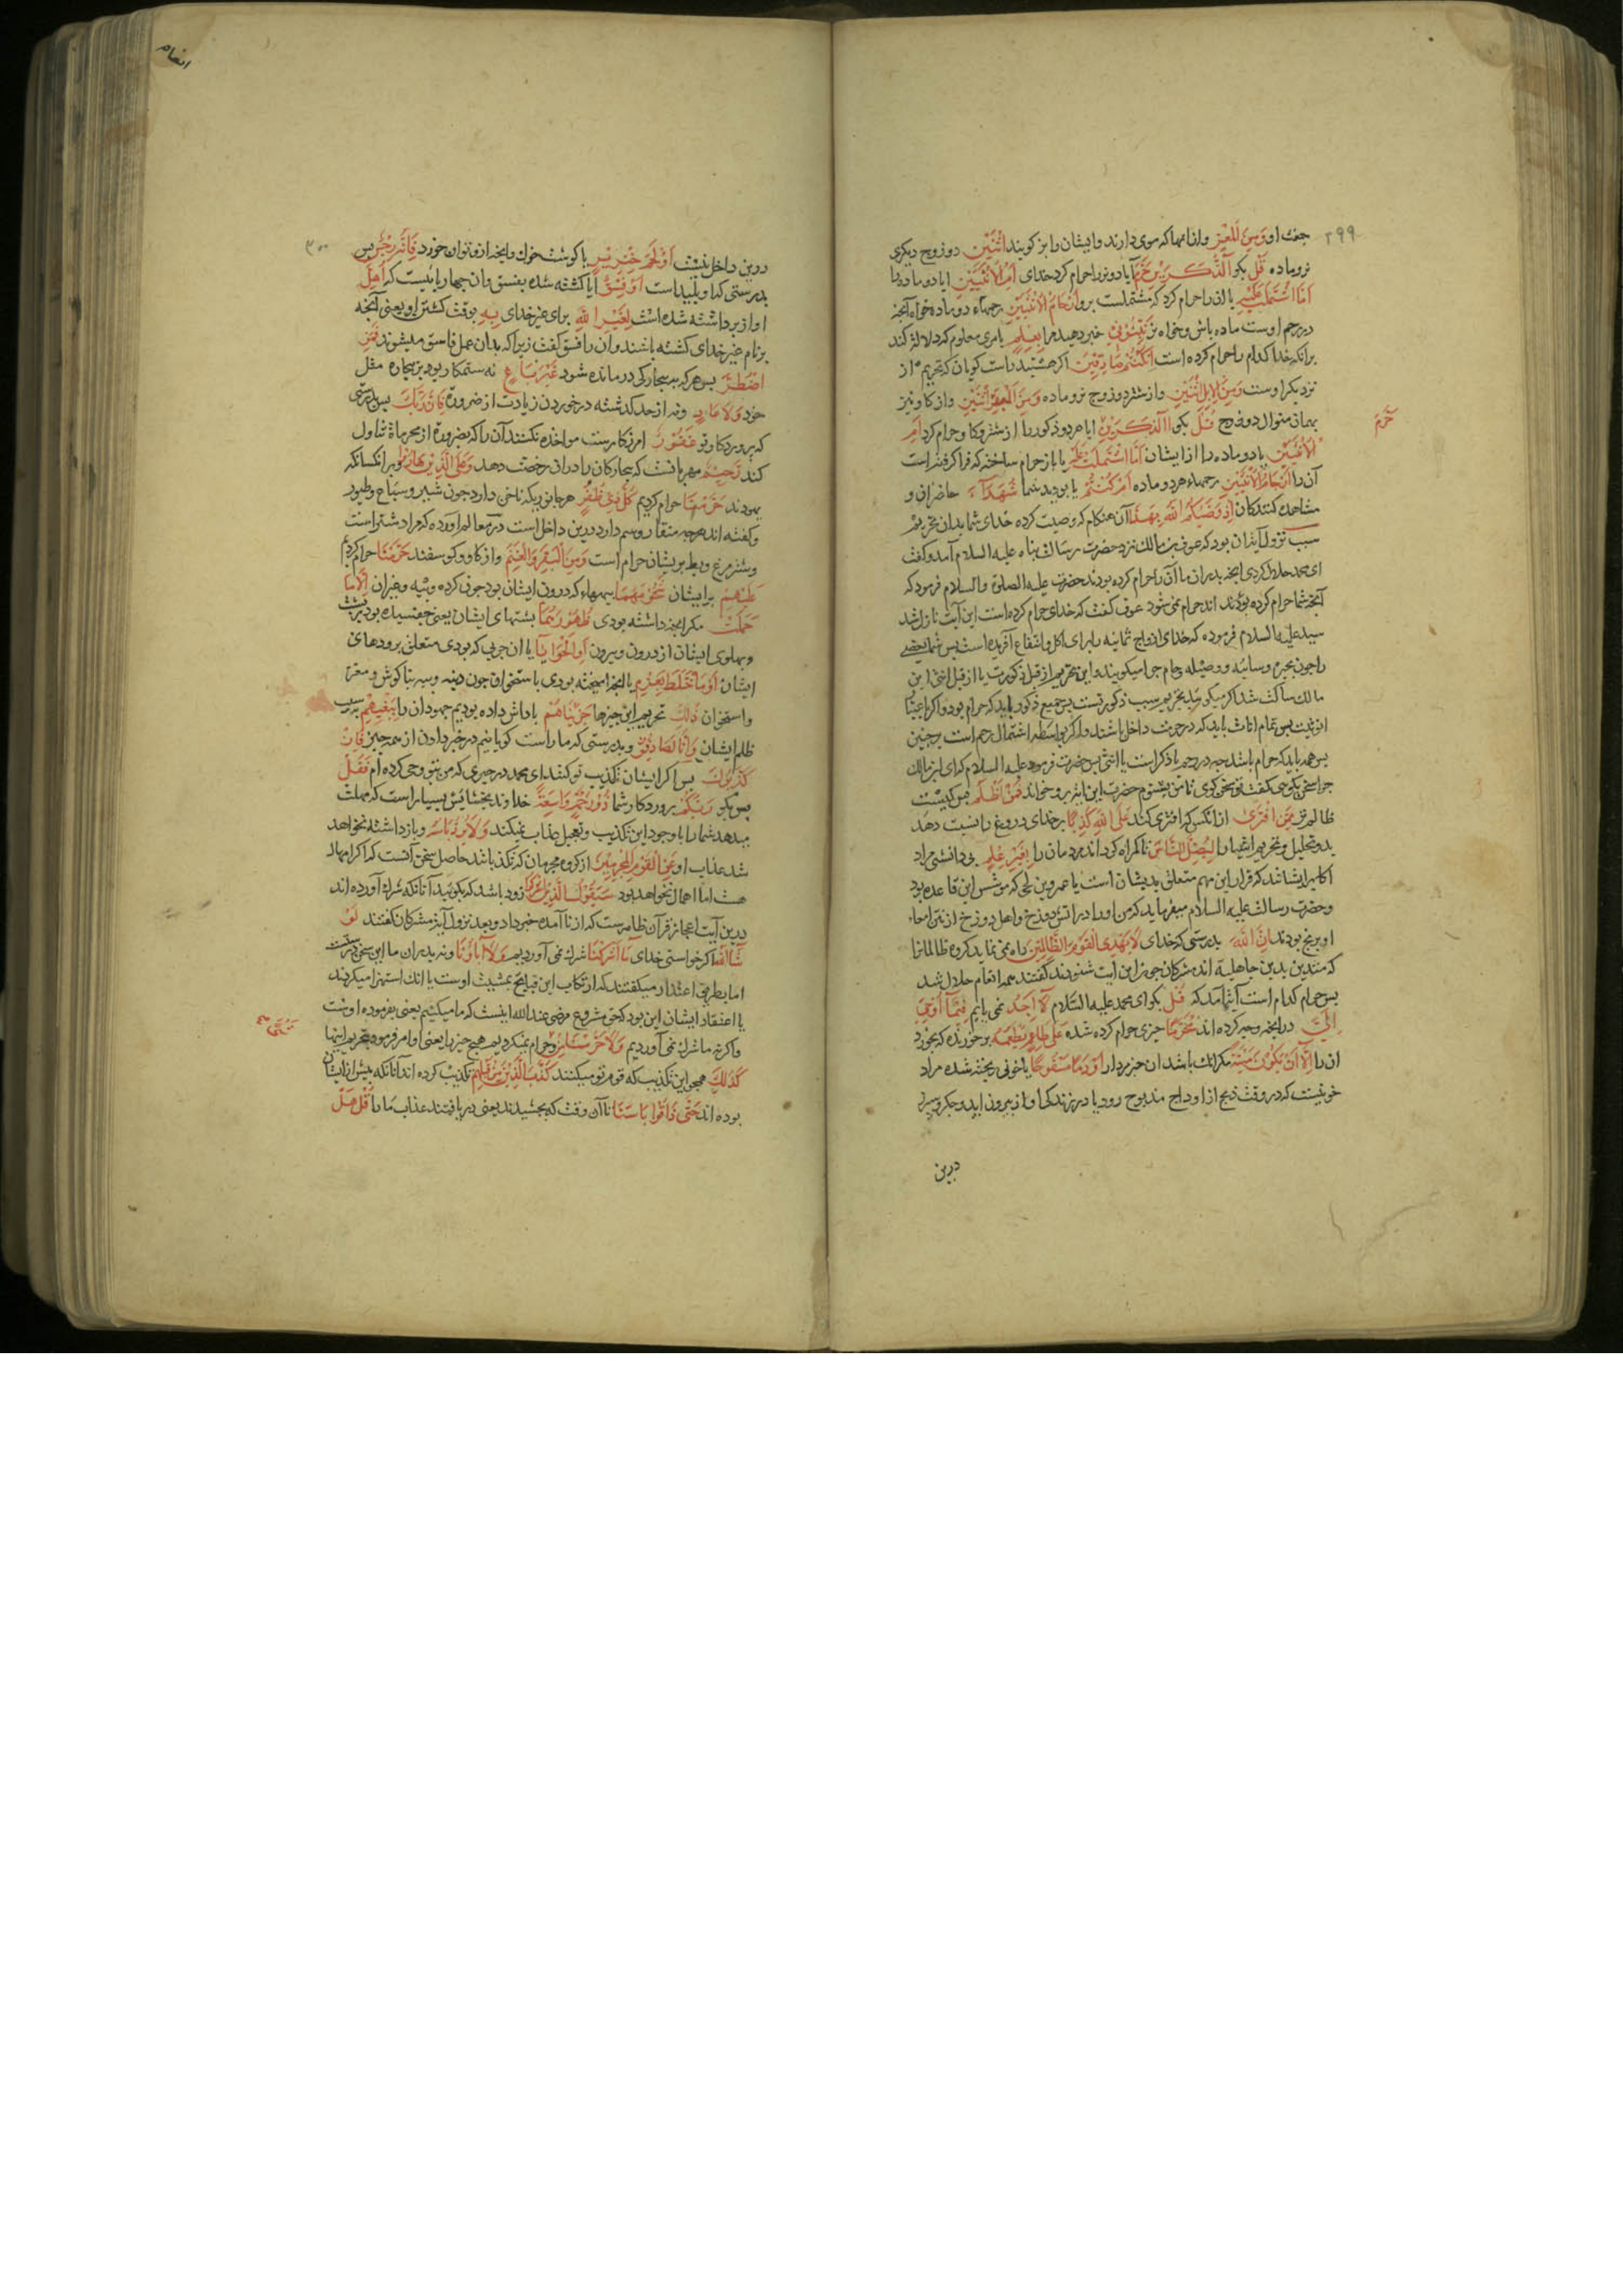 ۲۹۹
جفت او وَمِنَ الْمَعْزِ وازانها که موی دارند وایشان را بز کویند اثْنَيْنِ دو زوج دیکری
نر وماده قُلْ بکو آلذَّكَرَيْنِ حَرَّمَ آیا دو نر را حرام کرد خدای اَمِ الْاُنْثَيَيْنِ ایا دو ماده را
اَمَّا اشْتَمَلَتْ عَلَيْهِ یا ان را حرام کرد که مشتملست برو اَرْحَامُ الْاُنْثَيَيْنِ رحمهاء دو ماده خواه آنچه
در رحم اوست ماده باش وخواه نر نَبِّئُونِي خبر دهید مرا بِعِلْمٍ بامری معلوم که دلالت کند
برانکه خدا کدام را حرام کرده است اِنْ كُنْتُمْ صَادِقِينَ اکر هستید راست کویان که تحریم از
نزدیک اوست وَمِنَ الْاِبِلِ اثْنَيْنِ واز شتر دو زوج نر وماده وَمِنَ الْبَقَرِ اثْنَيْنِ واز کاو نیز
بهمان منوال دو زوج قُلْ بکو آلذَّكَرَيْنِ ایا هر دو ذکور را از شتر وکاو حرام کرد اَمِ
حَرَّمَ
الْاُنْثَيَيْنِ یا دو ماده را از ایشان اَمَّا اشْتَمَلَتْ عَلَيْهِ یا باز حرام ساخته که فرا کرفته است
آن را اَرْحَامُ الْاُنْثَيَيْنِ رحمهاء هر دو ماده اَمْ كُنْتُمْ یا بودید شما شُهَدَآءَ حاضران و
مشاهده کنندکان اِذْ وَصَّيكُمُ اللّهُ بِهٰذَا آن هنکام که وصیت کرده خدای شما بدان تحریم
سبب نزول آیت ان بود که عوف بن مالک نزد حضرت رسالت پناه علیه السلام آمد وکفت
ای محمد حلال کردی انچه پدران ما آن را حرام کرده بودند حضرت علیه الصلوة والسلام فرمود که
آنچه شما حرام کرده بودند اند حرام نمی شود عوف کفت که خدای حرام کرده است این آیت نازل شد
سید علیه السلام فرموده که خدای ازواج ثمانیه را برای اکل وانتفاع آفریده است پس شما بعضی
را چون بحیره وسائبه ووصیله وحام چرا میکویند واین تحریم از قبل ذکورت یا از قبل انثی این
مالک ساکت شد اکر میکوید تحریم سبب ذکورتست پس جمیع ذکور باید که حرام بود واکر باعث
انوثیت پس تمام اناث باید که در حرمت داخل باشند واکر بواسطه اشتمال رحم است بر جنین
پس همه باید که حرام باشد چه در رحم یا ذکر است یا انثی پس حضرت فرمود علیه السلام که ای ابن مالک
چرا سخن نکویی کفت تو سخن کوی تا من بشنوم حضرت این آیت برو خواند فَمَنْ اَظْلَمُ پس کیست
ظالم تر مِمَّنِ افْتَرٰى از انکس که افتری کند عَلَى اللّهِ كَذِبًا بر خدای دروغ را نسبت دهد
بدو تحلیل وتحریم اشیا را لِيُضِلَّ النَّاسَ تا کمراه کرداند مردمان را بِغَيْرِ عِلْمٍ بی دانشی مراد
اکابر ایشانند که قرار این مهم متعلق بدیشان است یا عمرو بن لحی که موسس این قاعده بود
وحضرت رسالت علیه السلام میفرماید که من او را در اتش دوزخ واهل دوزخ از نتن امعاء
او برنج بودند اِنَّ اللّهَ بدرستی که خدای لَا يَهْدِي الْقَوْمَ الظَّالِمِينَ راه نمی نماید کروه ظالمانرا
که متدین بدین جاهلیة اند مشرکان چون این ایت شنودند کفتند همه انعام حلال شد
پس حرام کدام است آیت آمد که قُلْ بکو ای محمد علیه السّلام لَا اَجِدُ نمی یابم فِيمَا اُوحِيَ
اِلَيَّ در انچه وحی کرده اند مُحَرَّمًا چیزی حرام کرده شده عَلٰى طَاعِمٍ يَطْعَمُهُ بر خورنده که بخورد
ان را اِلَّا اَنْ يَكُونَ مَيْتَةً مکر انک باشد ان چیز مردار اَوْ دَمًا مَسْفُوحًا یا خونی ریخته شده مراد
خونیست که در وقت ذبح از اوداج مذبوح رود یا در زندکی او از بیرون اید وجکر وسپرز
درین
انعام
۳۰۰
درین داخل نیست اَوْ لَحْمَ خِنْزِيرٍ یا کوشت خوک وانچه ازو توان خورد فَاِنَّهُ رِجْسٌ پس
بدرستی که او پلید است اَوْ فِسْقًا ایا کشته شده بفسق وان چهارپائیست که اُهِلَّ
اواز برداشته شده است لِغَيْرِ اللّهِ برای غیر خدای بِهِ بوقت کشتن او یعنی آنچه
بر نام غیر خدای کشته باشند وان را فسق کفت زیرا که بدان عمل فاسق میشوند فَمَنِ
اضْطُرَّ پس هر که به بیچارکی درمانده شود غَيْرَ بَاغٍ نه ستمکار بود بر بیچاره مثل
خود وَلَا عَادٍ ونه از حد کذشته در خوردن زیادت از ضرورة فَاِنَّ رَبَّكَ پس بدرستی
که پروردکار تو غَفُورٌ امرزکارست مواخذه نکنند آن را که بضرورة از محرماة تناول
کند رَحِيمٌ مهربانست که بیچارکان را دران رخصت دهد وَعَلَى الَّذِينَ هَادُوا وبر انکسانکه
یهودند حَرَّمْنَا حرام کردیم كُلَّ ذِي ظُفُرٍ هر جانوریکه ناخن دارد چون شیر وسباع وطیور
وکفته اند هر چه منقار وسم دارد درین داخل است در معالم اورده که مراد شتر است
وشترمرغ وبط بریشان حرام است وَمِنَ الْبَقَرِ وَالْغَنَمِ واز کاو وکوسفند حَرَّمْنَا حرام کردیم
عَلَيْهِمْ بر ایشان شُحُومَهُمَا پیههاء که درون ایشان بود چون کرده وپیه وغیر ان اِلَّا مَا
حَمَلَتْ مکر انچه داشته بودی ظُهُورُهُمَا پشتهای ایشان یعنی چفسیده بود بر پشت
وپهلوی ایشان از درون وبیرون اَوِ الْحَوَايَا یا ان چربی که بودی متعلق برودهای
ایشان اَوْ مَا اخْتَلَطَ بِعَظْمٍ یا انچه امیخته بودی با ستخوان چون دنبه وپیه بناکوش ومغز
واستخوان ذٰلِكَ تحریم این چیزها جَزَيْنَاهُمْ پاداش داده بودیم جهودان را بِبَغْيِهِمْ بسبب
ظلم ایشان وَاِنَّا لَصَادِقُونَ وبدرستی که ما راست کویانیم در خبر دادن از همه چیز فَاِنْ
كَذَّبُوكَ پس اکر ایشان تکذیب تو کنند ای محمد در چیزی که من بتو وحی کرده ام فَقُلْ
پس بکو رَبُّكُمْ پروردکار شما ذُو رَحْمَةٍ وَاسِعَةٍ خداوند بخشایش بسیار است که مهلت
میدهد شما را با وجود این تکذیب وتعجیل عذاب نمیکند وَلَا يُرَدُّ بَأْسُهُ وباز داشته نخواهد
شد عذاب او عَنِ الْقَوْمِ الْمُجْرِمِينَ از کروه مجرمان که تکذیبانند حاصل سخن آنست که اکر امهال
هست اما اهمال نخواهد بود سَيَقُولُ الَّذِينَ اَشْرَكُوا زود باشد که بکویند آنانکه شرک آورده اند
درین آیت اعجاز قرآن ظاهرست که از نا آمده خبر داد وبعد نزول آیة مشرکان کفتند لَوْ
شَاءَ اللّهُ اکر خواستی خدای مَا اَشْرَكْنَا شرک نمی آوردیم وَلَا آبَاؤُنَا ونه پدران ما این سخن
اما بطریق اعتذار میکفتند که ارتکاب این قبایح بمشیت اوست یا انک استهزا میکردند
یا اعتقاد ایشان این بود که حق مشروع مرضی عند الله اینست که ما میکنیم یعنی بفرموده اوست
واکرنه ما شرک نمی آوردیم وَلَا حَرَّمْنَا مِنْ وحرام نمیکردیم هیچ چیز را یعنی او امر فرمود بتحریم اینها
شَيْءٍ
كَذٰلِكَ همچو این تکذیب که قوم تو میکنند كَذَّبَ الَّذِينَ مِنْ قَبْلِهِمْ تکذیب کرده اند آنانکه پیش از ایشان
بوده اند حَتّٰى ذَاقُوا بَأْسَنَا تا آن وقت که بچشیدند یعنی دریافتند عذاب ما را قُلْ هَلْ